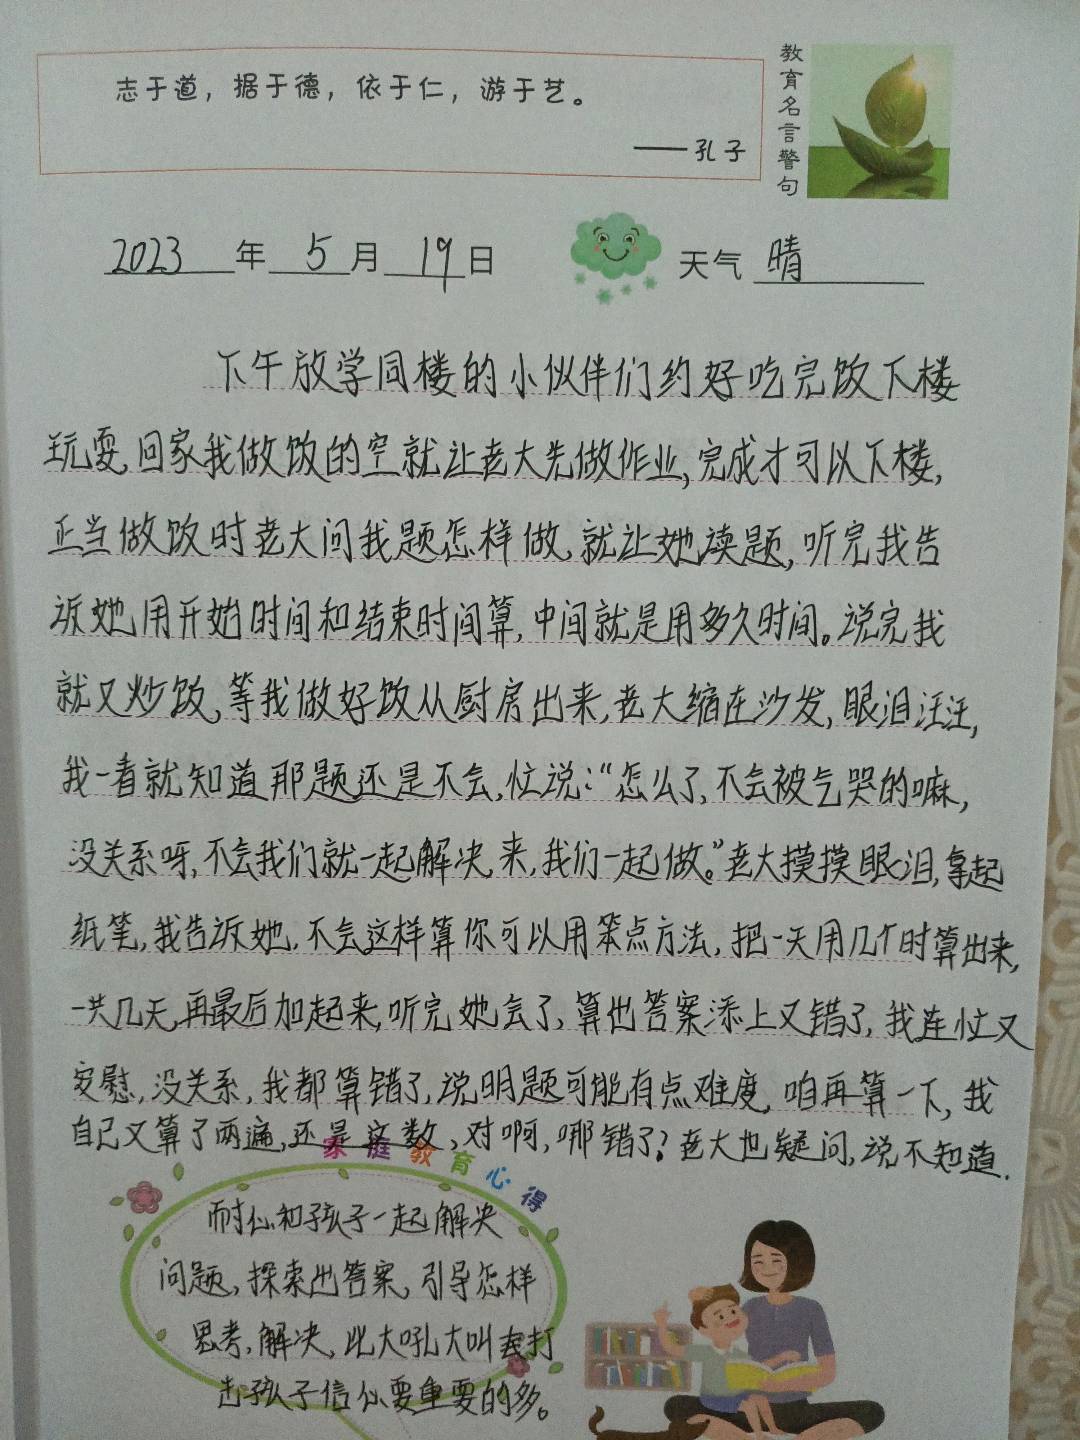 志于道，据于德，依于仁，游于艺。
——孔子
教育名言警句
2023年5月19日 天气 晴
下午放学同楼的小伙伴们约好吃完饭下楼
玩耍,回家我做饭的空就让老大先做作业,完成才可以下楼,
正当做饭时老大问我题怎样做,就让她读题,听完我告
诉她用开始时间和结束时间算,中间就是用多久时间。说完我
就又炒饭,等我做好饭从厨房出来,老大缩在沙发,眼泪汪汪,
我一看就知道那题还是不会,忙说:“怎么了,不会被气哭的嘛,
没关系呀,不会我们就一起解决,来,我们一起做。”老大摸摸眼泪,拿起
纸笔,我告诉她,不会这样算你可以用笨点方法,把一天用几个时算出来,
一共几天,再最后加起来,听完她会了,算出答案添上又错了,我连忙又
安慰,没关系,我都算错了,说明题可能有点难度,咱再算一下,我
自己又算了两遍,还是这数、对啊,哪错了?老大也疑问,说不知道.
家庭教育心得
耐心和孩子一起解决
问题,探索出答案,引导怎样
思考,解决,比大吼大叫去打
击孩子信心要重要的多。